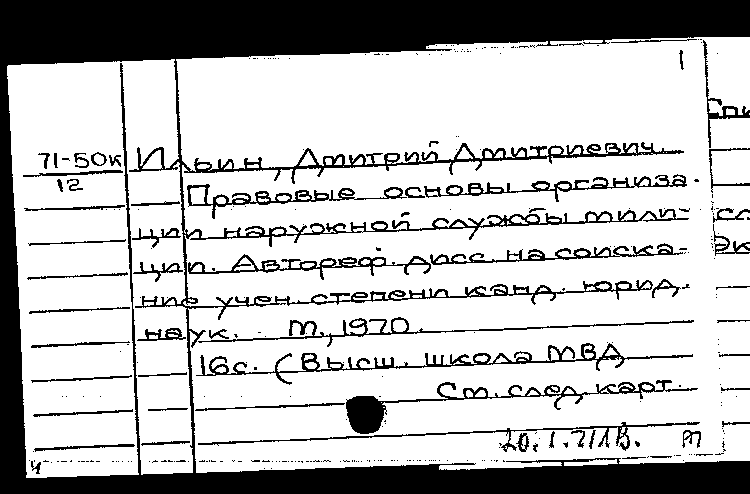 1
71-50к Ильин, Дмитрий Дмитриевич.
12
Правовые основы организа-
ции наружной службы мили-
ции. Автореф. дисс. на соиска-
ние учен. степени канд. юрид.
наук. М., 1970.
16с. (Высш. школа МВД
См. след. карт.
20.1.71
ч